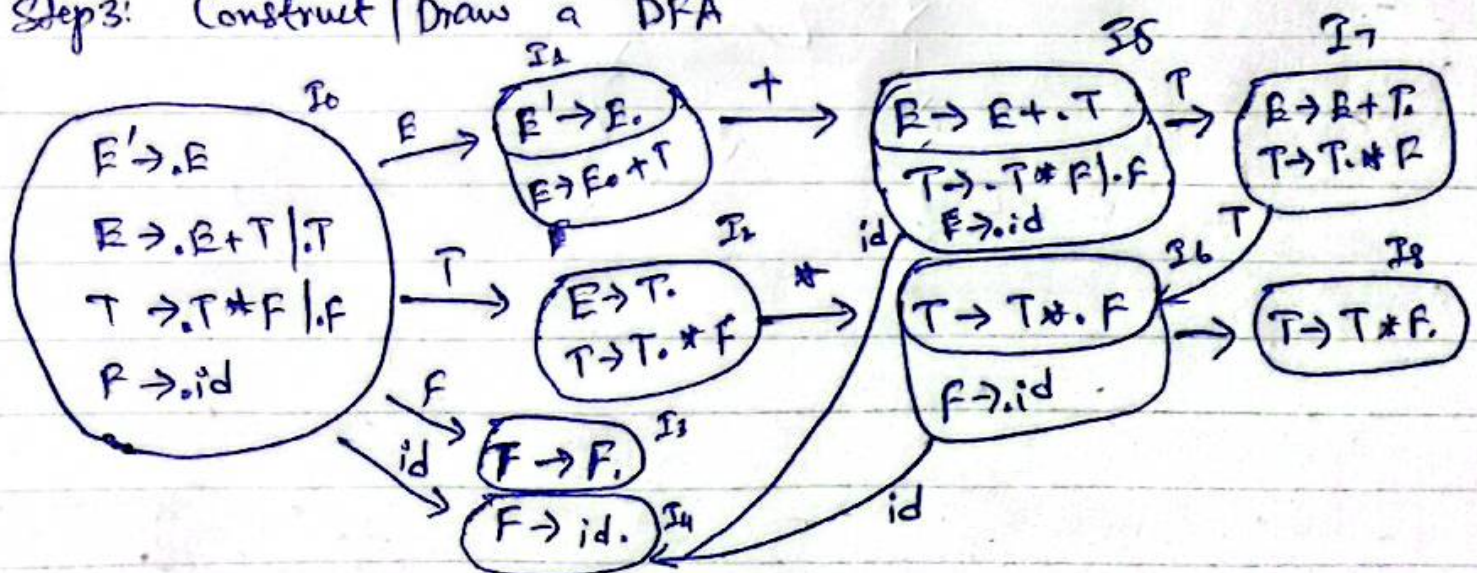 Step3: Construct / Draw a DFA
I0
E' → .E
E → .E+T | .T
T → .T * F | .F
F → .id
E
I1
E' → E.
E → E. + T
+
I5
E → E + . T
T → . T * F | . F
F → .id
T
I7
E → E + T.
T → T. * F
T
T
I2
E → T.
T → T. * F
*
id
I6
T → T * . F
F → .id
I8
T → T * F.
F
I3
T → F.
id
I4
F → id.
id